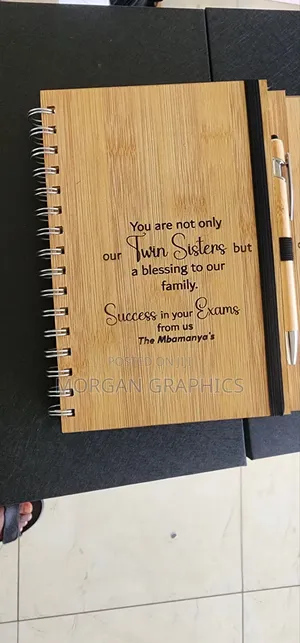 You are not only
our Twin Sisters but
a blessing to our
family.
Success in your Exams
from us
The Mbamanya's
POSTED ON
MORGAN GRAPHICS